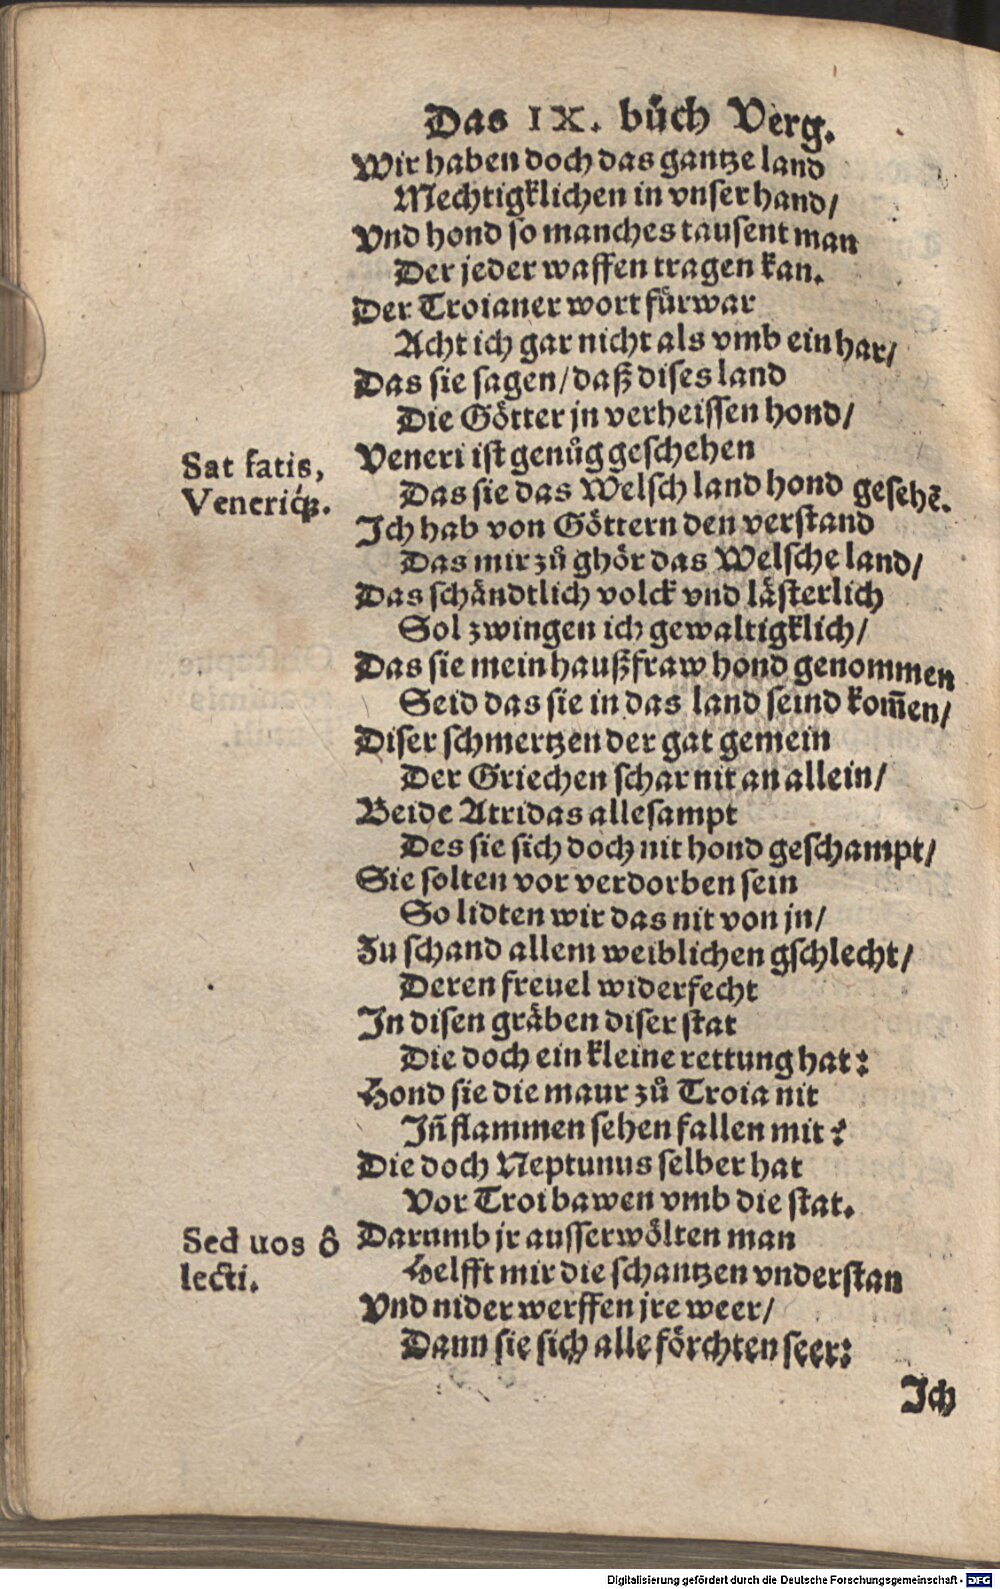 Das IX. bůch Verg.
Wir haben doch das gantze land
Mechtigklichen in vnser hand/
Vnd hond so manches tausent man
Der jeder waffen tragen kan.
Der Troianer wort fürwar
Acht ich gar nicht als vmb ein har/
Das sie sagen/ daß dises land
Die Götter jn verheissen hond/
Sat fatis,
Veneriq́;.
Veneri ist genůg geschehen
Das sie das Welsch land hond gesehē.
Ich hab von Göttern den verstand
Das mir zů ghör das Welsche land/
Das schändtlich volck vnd lästerlich
Sol zwingen ich gewaltigklich/
Das sie mein haußfraw hond genommen
Seid das sie in das land seind kom̃en/
Diser schmertzen der gat gemein
Der Griechen schar nit an allein/
Beide Atridas allesampt
Des sie sich doch nit hond geschampt/
Sie solten vor verdorben sein
So lidten wir das nit von jn/
Zu schand allem weiblichen gschlecht/
Deren freuel widerfecht
In disen gräben diser stat
Die doch ein kleine rettung hat:
Hond sie die maur zů Troia nit
Iñ flammen sehen fallen mit?
Die doch Neptunus selber hat
Vor Troi bawen vmb die stat.
Sed uos ô
lecti.
Darumb jr ausserwölten man
Helfft mir die schantzen vnderstan
Vnd nider werffen jre weer/
Dann sie sich alle förchten seer:
Ich
Digitalisierung gefördert durch die Deutsche Forschungsgemeinschaft - DFG